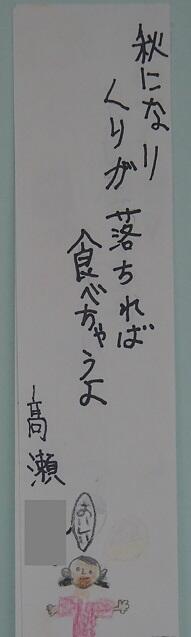 秋になり
くりが落ちれば
食べちゃうよ
高瀬
おいしい